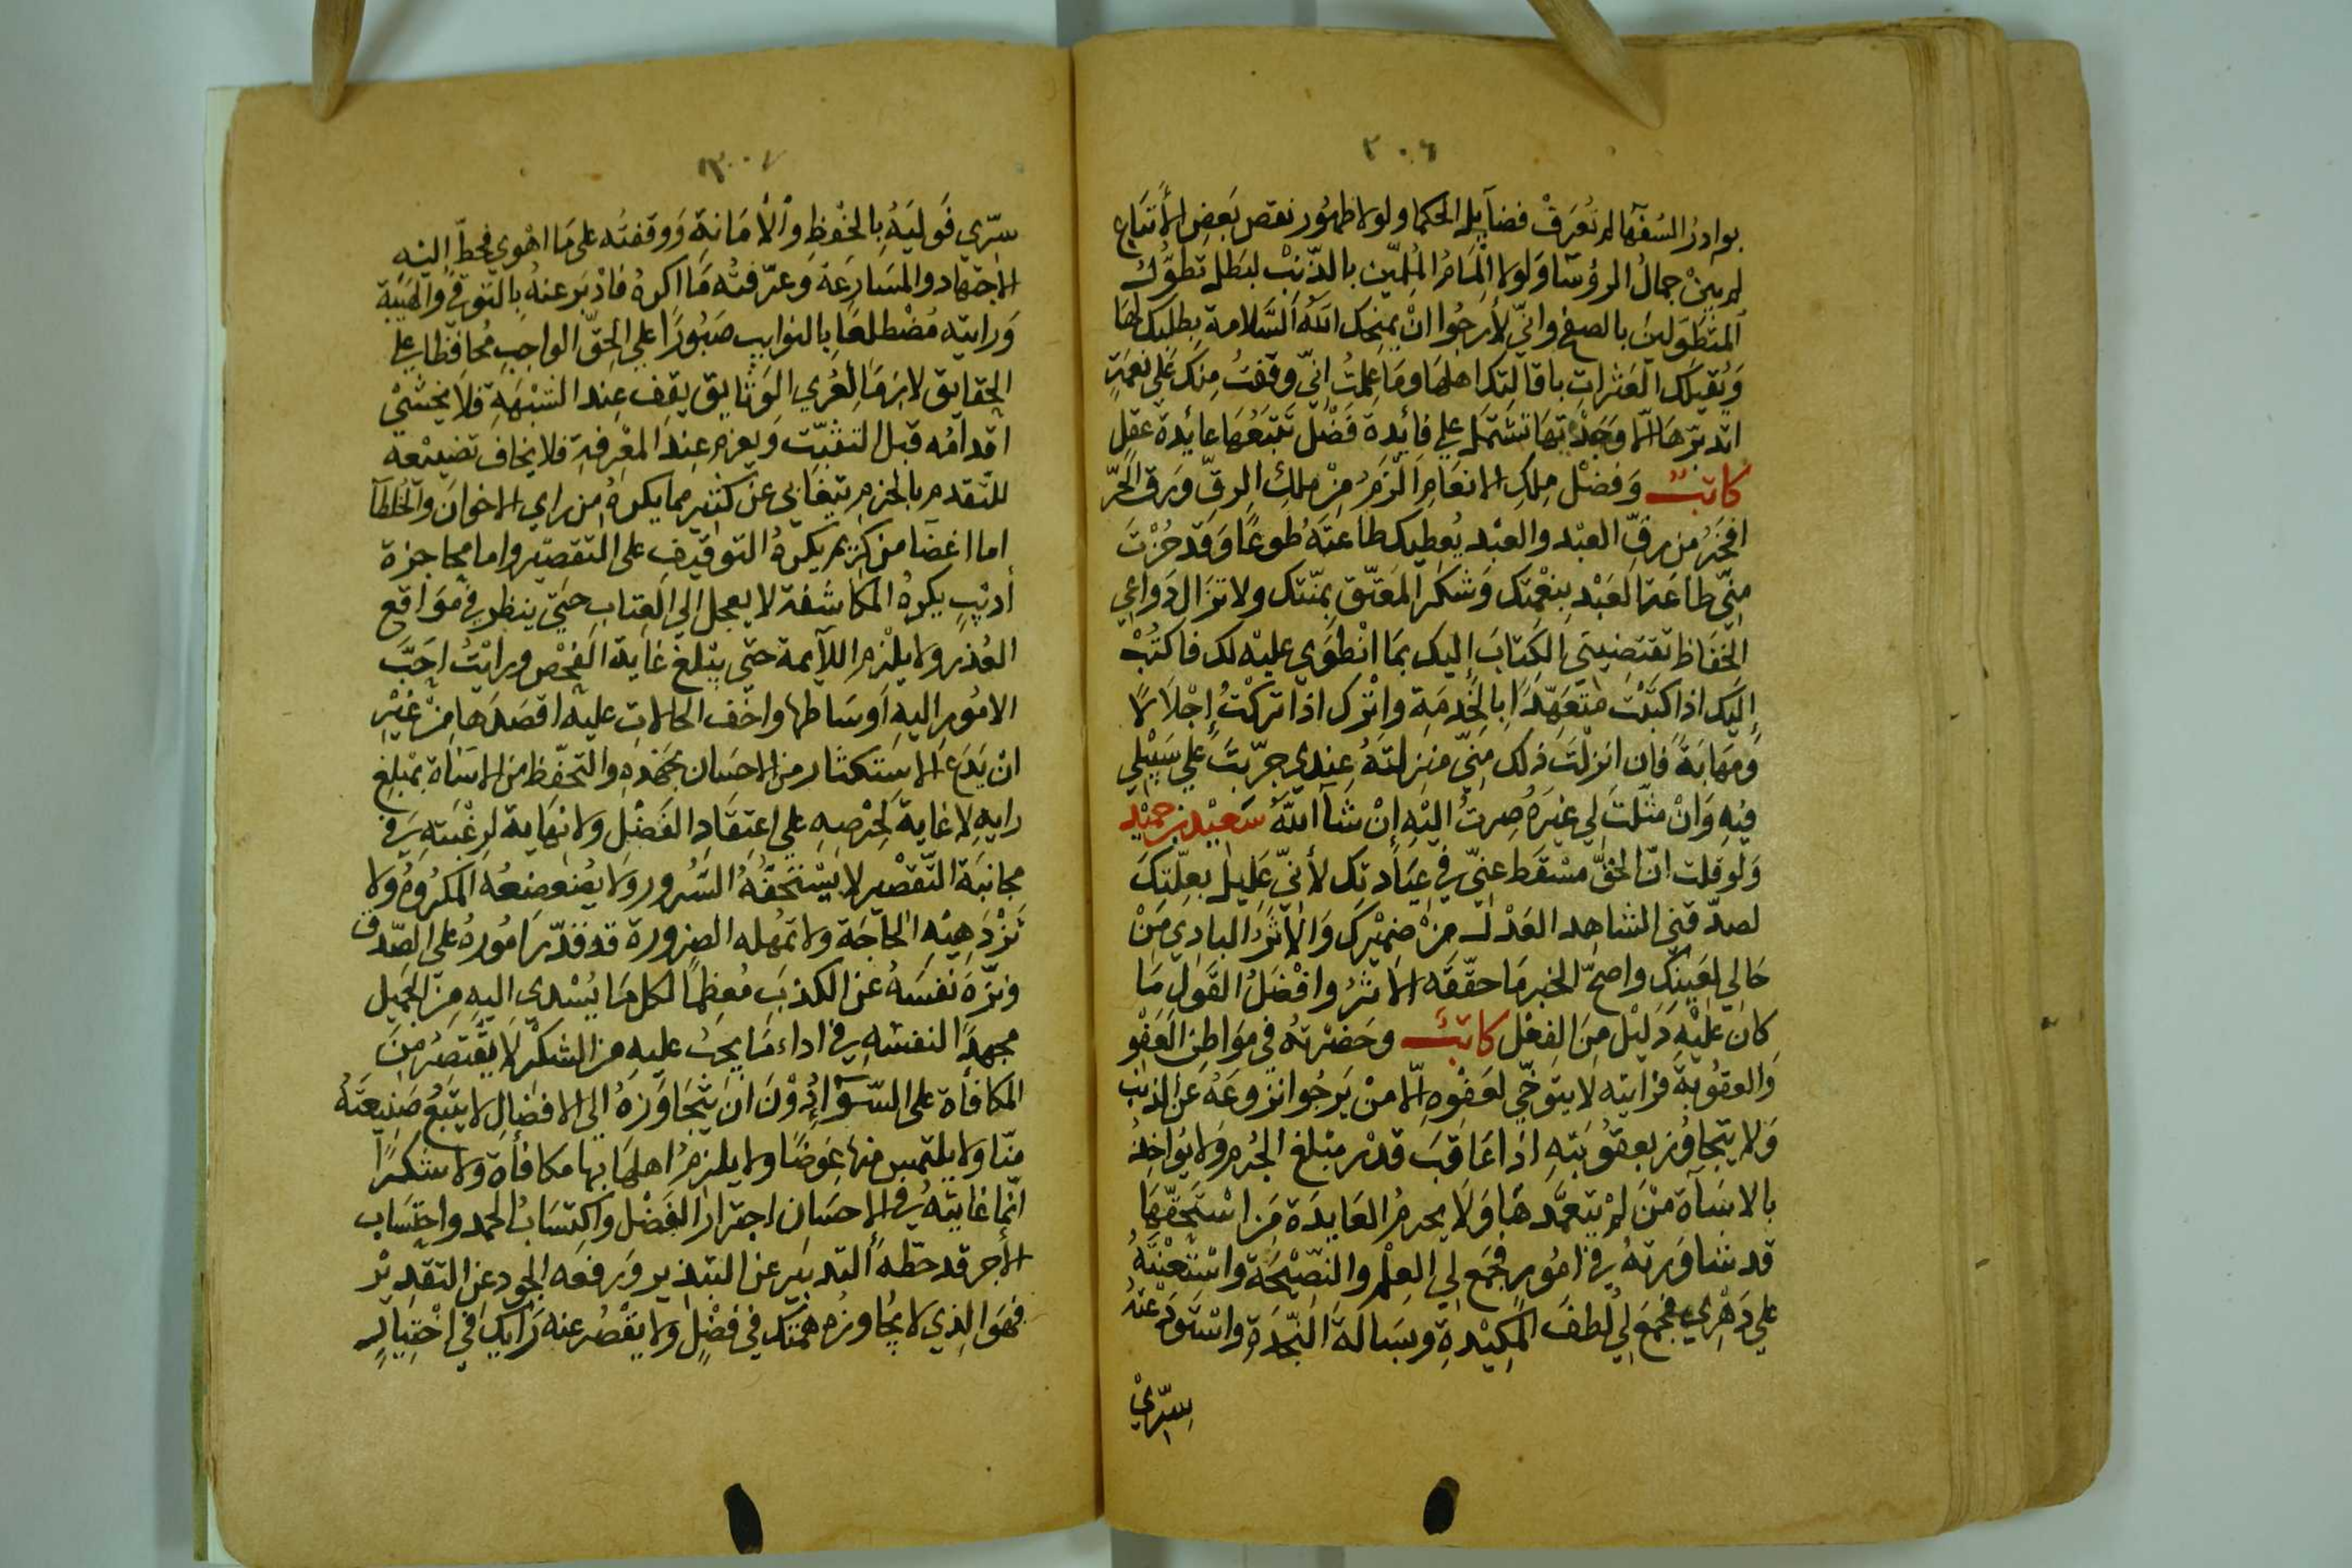 ٣٠٦
بوادرُ السُفهآ لم تُعرَفْ فضآيل الحكما ولولا ظهُور نقص بَعضِ الأَتبَاع
لم يبِنْ جمالُ الرؤسَآ وَلولا إلمَامُ المُلمّين بالذّنبْ لبَطل تطوُّل
المتَطَوّلين بالصفح وانّي لأرجُوا انْ يمنِحك اللهُ السَّلامة بِطلبِك لهَا
وَيُقيلَك العَثراتِ باقالتِك اهلهَا ومَا علمتُ انّي وقفتُ منِك عَلي نعمَةٍ
اتدبّرهَا إلّا وَجَدْتهَا تشتمل علي فائدة فَضْل تتبَعُهَا عائدة عقلِ
كاتبٌ وَفضْل مِلكِ الانعَامِ الزَمُ مِنْ ملكِ الرِقّ وَرق الحُرّ
افخرُ من رقِّ العبْد والعبْد يُعطِيك طاعتَهُ طَوعًا وَقَد حُزْتَ
مِنّي طاعَة العَبْدِ بنِعْمتِك وَشكر المُعتَق بمنّتك ولا تزَال دَواعِي
الحَفَاظ تقتضِيني الكتابَ إليك بمَا انْطَوي عليْه لك فاكتُبْ
إليَك اذا كتَبْت متعَهِّدًا بالخِدمَةِ وانْرك اذا تركْتُ إجْلالًا
وَمَهابَةً فان انزلتَ ذلك مِنّي منزِلتَهُ عِندي جرّيتَ علي سَبيْلي
فيْهِ وَانْ مثّلتَ لي غيَرهُ صِرتُ اليْهِ إنْ شآ اللهُ سَعيْد بن حميْد
وَلو قلت انّ الحقَّ مسْقَط عنّي في عِيَادتِك لأنّي عَلِيل بعِلّتِك
لصدّقني الشاهِد العَدْل مِنْ ضميْرك وَالأثرُ البادِي مَِنْ
حَالي لعَينِك واصحّ الخبر مَا حقّقَه الاثرُ وافْضَلُ القَول مَا
كان عليْهِ دَليْل مِنَ الفِعْل كاتبٌ وحَضرْتهُ في مَواطن العَفْو
وَالعقوُبة فرَايته لا يتوخّي لعَفْوِه إلّا منْ يَرجُوا نزوعَهُ عَن الذنب
وَلا يتجاوُز بعقوُبتهِ اذا عَاقبَ قدْر مبْلغ الجُرم وَلا يُواخِذُ
بالاسَآة مَنْ لمْ يتعمَّدهَا وَلا يحرمُ العَايدَة مَن اسْتحقّهَا
قد شاوَرتهُ في امُورٍ فجمَع لي العِلْم والنصِيْحَة واسْتَعنْتهُ
علي دَهْري فجمَع لي لُطفَ المكِيْدةِ وبسَالة النجْدَةِ واسْتودَعْتهُ
سِرّي

٣٠٧
سرّي فَوليَهُ بالحفْظِ وَالأمَانةِ وَوقفتُه علي مَا اهْوي فحطّ اليْهِ
الاجتهاد والمسَارعَةَ وعرّفتُه مَا اكرهُ فادْبرَ عنهُ بالتوقي والهَيْبَة
وَرايته مُضْطلعًا بالنوايب صَبُورًا علي الحقّ الواجِب مُحافِظًا علي
الحقايق لازمَا لعُري الوَثايق يقف عِند الشبْهةِ فلا يخشي
اقدامُه قبل التثبّت وَيعزم عِند المعْرِفةِ فلا يخاف تضيْعه
للتّقدم بالحزم يتغابي عن كثير مما يكرهُ من راي الاخوانَ والخُلطآ
اما اغضآ من كريم يكرهُ التوقِيف علي التقصْير واما محاجزة
أديْب يكرهُ المكاشَفة لا يعجل الي العِتاب حتي ينظر في مَواقع
العُذر ولا يلْزم اللآيمة حتي يبْلغ غاية الفحْص ورايْتُ احَبَّ
الامُور اليهِ اوسَاطها واخف الحالات عليه اقصَدَها مِنْ غيْرِ
ان يَدَعَ الاسْتكثار من الاحسَان بجهْدهِ والتحفّظ من الاسَاة بمبْلغ
رايهِ لا غايةَ لحِرْصِهِ علي اعتِقادِ الفَضْل ولا نهَاية لرغْبتهِ في
مجانبَة التّقصْير لا يسْتخفّهُ السُرور ولا يضعضعُه المكروُه ولا
تزْدَهِيْهِ الحاجَة ولا تمهله الضرورة قد قدّر امُورهُ علي الصّدق
ونزّهَ نفسَهُ عَن الكذبِ مُعظِمًا لكل مَا يُسْدي اليهِ مِن الجَميل
مجهدًا لنفسْهِ في اداء مَا يجبُ عليهِ من الشكْر لا يقْتصُر مِنَ
المكافأة علي السّوَآءِ دُوْنَ ان يتجَاوَزهُ الي الافضال لا يتبَعُ صَنيعَتهُ
منّا ولا يلتمسِ منها عِوضًا ولا يلزمُ اهلهَا بها مكافأة ولا شكرًا
انّما غايتهُ في الاحسَان اجترارُ الفضْل واكتِسَابُ الحمد واحتسَاب
الأجر قد حطّهُ التدبيَر عن التبْذير وَرفعه الجود عن التقدِيْر
فهوَ الذي لا يجُاوزُه همتك في فضْلٍ ولا يقْصُر عنه رَايك في اخْتيَارٍ